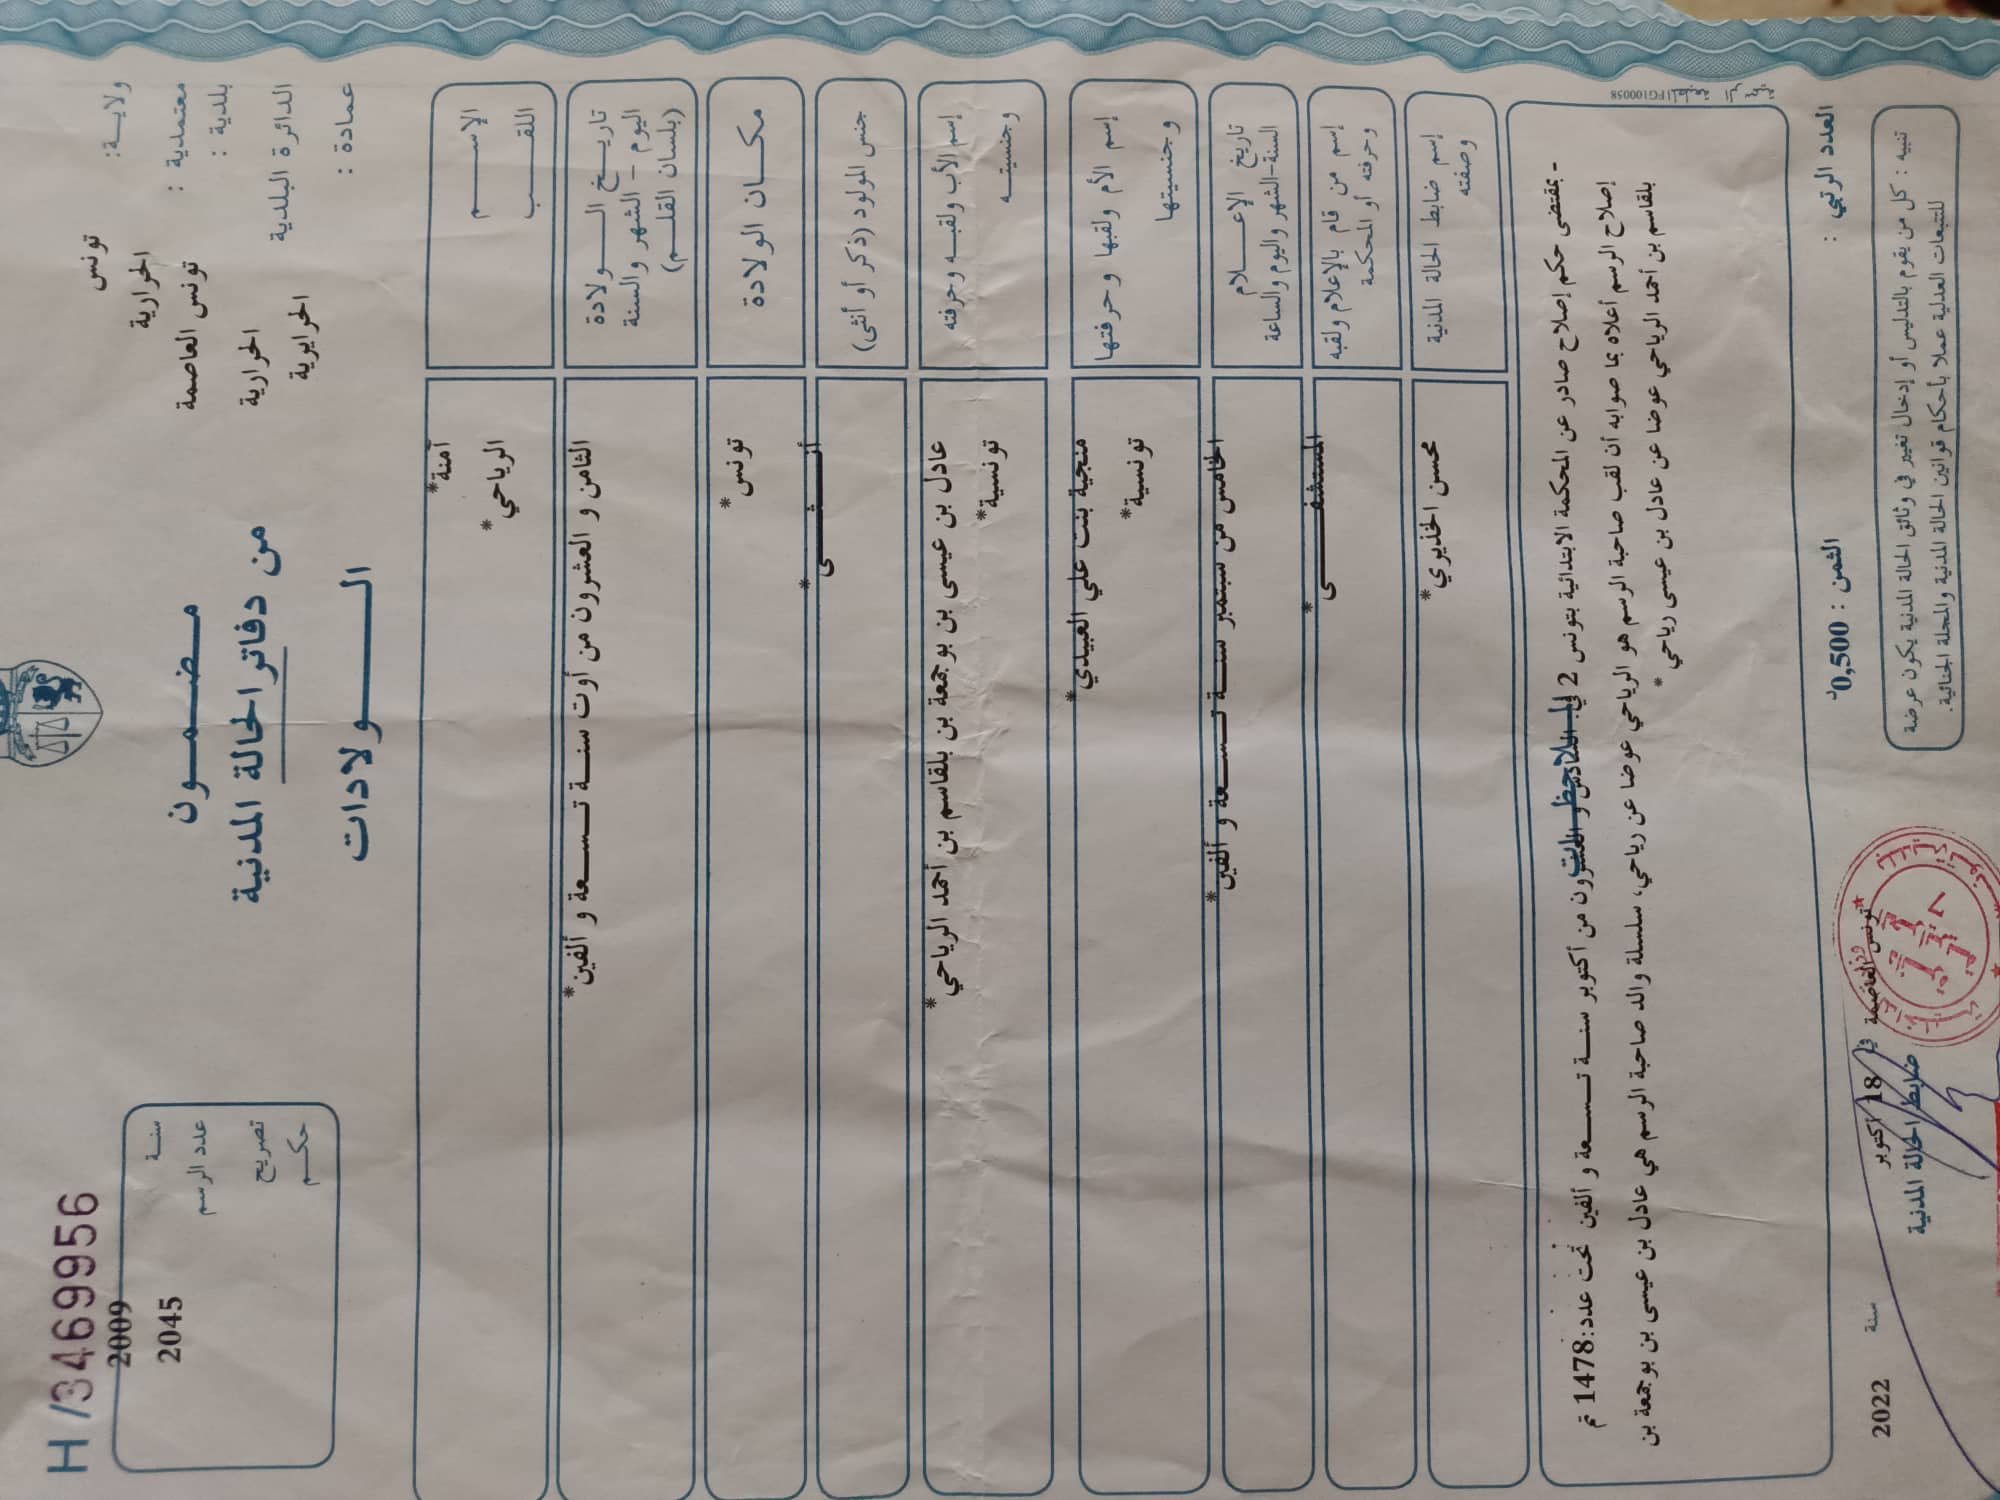 H /3469956
سنة 2009
عدد الرسم 2045
تصريح
حكم
مضمون
من دفاتر الحالة المدنية
الولادات
ولاية: تونس
معتمدية : الحرارية
بلدية : تونس العاصمة
الدائرة البلدية الحرارية
عمادة : الحرايرية
الإسم آمنة*
اللقب الرياحي*
تاريخ الولادة
اليوم - الشهر والسنة
(بلسان القلم)
الثامن و العشرون من أوت سنة تسعة و ألفين*
مكان الولادة تونس*
جنس المولود (ذكر أو أنثى) أنثى*
إسم الأب ولقبه وحرفته عادل بن عيسى بن بوجمعة بن بلقاسم بن أحمد الرياحي*
وجنسيته تونسية*
إسم الأم ولقبها وحرفتها منجية بنت علي العبيدي*
وجنسيتها تونسية*
تاريخ الإعلام
السنة-الشهر واليوم والساعة
الخامس من سبتمبر سنة تسعة و ألفين*
إسم من قام بالإعلام ولقبه
وحرفته أو المحكمة
المستشفى*
إسم ضابط الحالة المدنية
وصفته
محسن الخذيري*
الملاحظات
- بمقتضى حكم إصلاح صادر عن المحكمة الابتدائية بتونس 2 في السادس و العشرون من أكتوبر سنة تسعة و ألفين تحت عدد:1478 تم
إصلاح الرسم أعلاه بما صوابه أن لقب صاحبة الرسم هو الرياحي عوضا عن رياحي، سلسلة والد صاحبة الرسم هي عادل بن عيسى بن بوجمعة بن
بلقاسم بن أحمد الرياحي عوضا عن عادل بن عيسى رياحي*
المطبعة الرسمية PG100058
العدد الرتبي :
الثمن : 0,500د
تونس العاصمة في 18 أكتوبر سنة 2022
ضابط الحالة المدنية
تنبيه : كل من يقوم بالتدليس أو إدخال تغيير في وثائق الحالة المدنية يكون عرضة
للتتبعات العدلية عملا بأحكام قوانين الحالة المدنية والمجلة الجنائية.